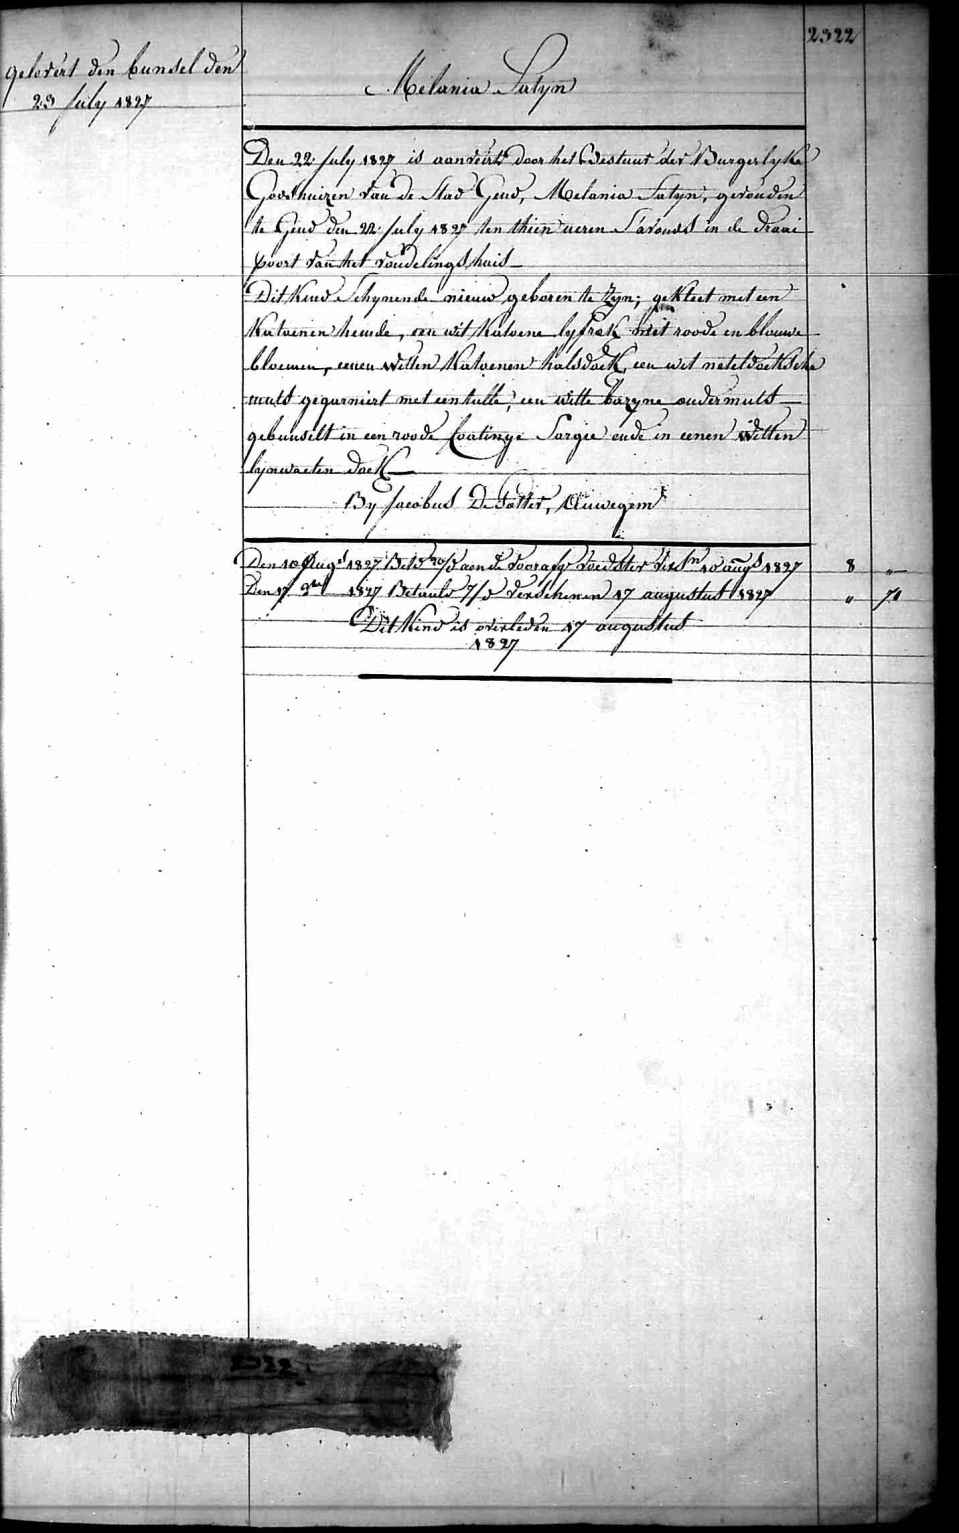 2322
gelevert den bunsel den
23 July 1827
Melania Satyn
Den 22 July 1827 is aanveirt door het Bestuur der Burgerlyke
Godshuizen van de Stad Gend, Melania Satyn, gevonden
te Gend den 22 July 1827 ten thien ueren S'avonds in de draai
poort van het vondelingshuis
Dit Kind Schynende nieuw geboren te Zyn; gekleet met een
Katoenen hemde, een wit Katoene lyfrok met roode en blouwe
bloemen, eenen Witten Katoenen halsdoek, een wit neteldoeksche
muts gegarniert met een tulle, een witte bazyne ondermuts
gebunselt in een roode Coatinge Sargie ende in eenen Witten
lynwaeten doek
By Jacobus De Potter, Auwegem
Den 10 Aug^t 1827 Bet^d aen de voorafg Voedster 10 aug^s 1827 8 "
Den 17 1827 Betaald 7/ Verschenen 17 augustus 1827 " 71
Dit Kind is overleden 17 augustus
1827
2322